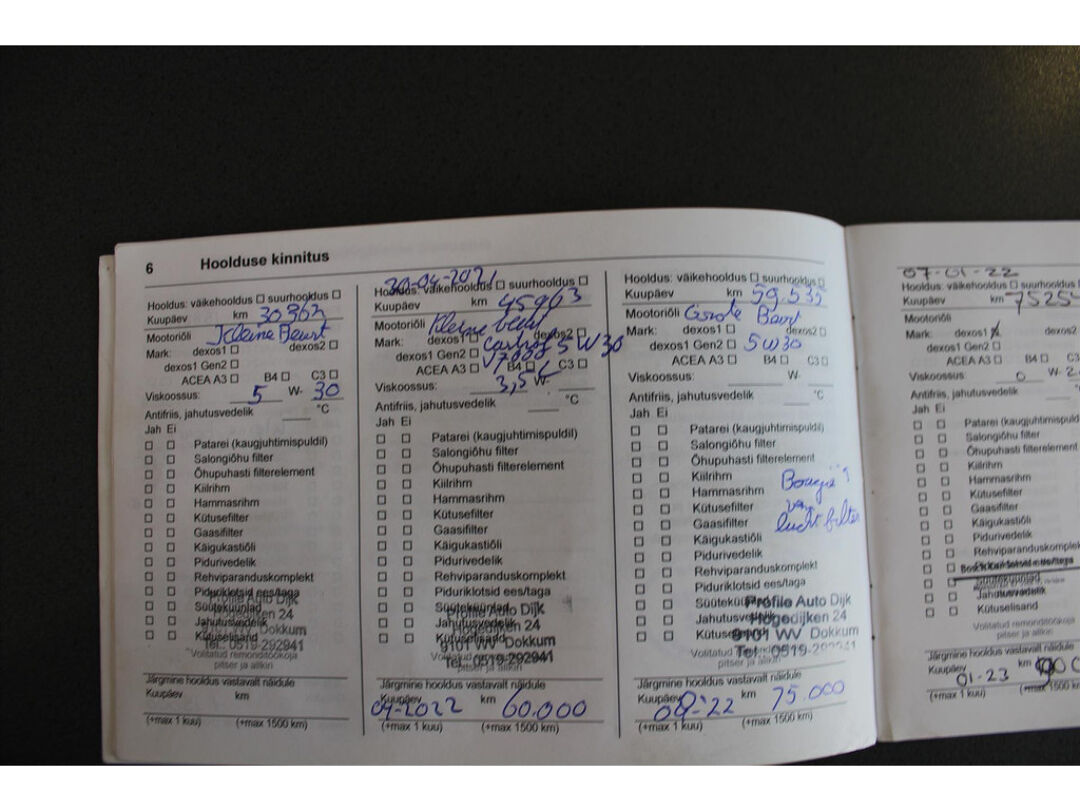 6 Hoolduse kinnitus
Hooldus: väikehooldus suurhooldus
Kuupäev km 30363
Mootoriõli Kleine Beurt
Mark: dexos1 dexos2
dexos1 Gen2
ACEA A3 B4 C3
Viskoossus: 5 W- 30
Antifriis, jahutusvedelik °C
Jah Ei
Patarei (kaugjuhtimispuldil)
Salongiõhu filter
Õhupuhasti filterelement
Kiilrihm
Hammasrihm
Kütusefilter
Gaasifilter
Käigukastiõli
Pidurivedelik
Rehviparanduskomplekt
Piduriklotsid ees/taga
Süüteküünlad
Jahutusvedelik
Kütuselisand
Profile Auto Dijk
Hogedijken 24
9101 WV Dokkum
Tel.: 0519-292941
Volitatud remonditöökoja
pitser ja allkiri
Järgmine hooldus vastavalt näidule
Kuupäev km
(+max 1 kuu) (+max 1500 km)
30-04-2021
Hooldus: väikehooldus suurhooldus
Kuupäev km 45963
Mootoriõli Kleine beurt
Mark: dexos1 dexos2
dexos1 Gen2 5W30
ACEA A3 B4 C3
Viskoossus: 3,5 W-
Antifriis, jahutusvedelik °C
Jah Ei
Patarei (kaugjuhtimispuldil)
Salongiõhu filter
Õhupuhasti filterelement
Kiilrihm
Hammasrihm
Kütusefilter
Gaasifilter
Käigukastiõli
Pidurivedelik
Rehviparanduskomplekt
Piduriklotsid ees/taga
Süüteküünlad
Jahutusvedelik
Kütuselisand
Profile Auto Dijk
Hogedijken 24
9101 WV Dokkum
Tel.: 0519-292941
Volitatud remonditöökoja
pitser ja allkiri
Järgmine hooldus vastavalt näidule
Kuupäev 04-2022 km 60.000
(+max 1 kuu) (+max 1500 km)
Hooldus: väikehooldus suurhooldus
Kuupäev km 59.535
Mootoriõli Grote Beurt
Mark: dexos1 dexos2
dexos1 Gen2 5W30
ACEA A3 B4 C3
Viskoossus: W-
Antifriis, jahutusvedelik °C
Jah Ei
Patarei (kaugjuhtimispuldil)
Salongiõhu filter
Õhupuhasti filterelement
Kiilrihm
Hammasrihm Bougie's
Kütusefilter
Gaasifilter luchtfilter
Käigukastiõli
Pidurivedelik
Rehviparanduskomplekt
Piduriklotsid ees/taga
Süüteküünlad
Jahutusvedelik
Kütuselisand
Profile Auto Dijk
Hogedijken 24
9101 WV Dokkum
Tel.: 0519-292941
Volitatud remonditöökoja
Järgmine hooldus vastavalt näidule
Kuupäev km 75.000
(+max 1 kuu) (+max 1500 km)
07-01-22
Hooldus: väikehooldus suurhooldus
Kuupäev km 7525
Mootoriõli
Mark: dexos1 dexos2
dexos1 Gen2
ACEA A3 B4 C3
Viskoossus: 0 W- 2
Antifriis, jahutusvedelik
Jah Ei
Patarei (kaugjuhtimispuldil
Salongiõhu filter
Õhupuhasti filterelement
Kiilrihm
Hammasrihm
Kütusefilter
Gaasifilter
Käigukastiõli
Pidurivedelik
Rehviparanduskomplek
Süüteküünlad
Jahutusvedelik
Kütuselisand
Volitatud remonditöökoja
pitser ja allkiri
Järgmine hooldus vastavalt näidule
Kuupäev 01-23 km 900
(+max 1 kuu) (+max 1500 km